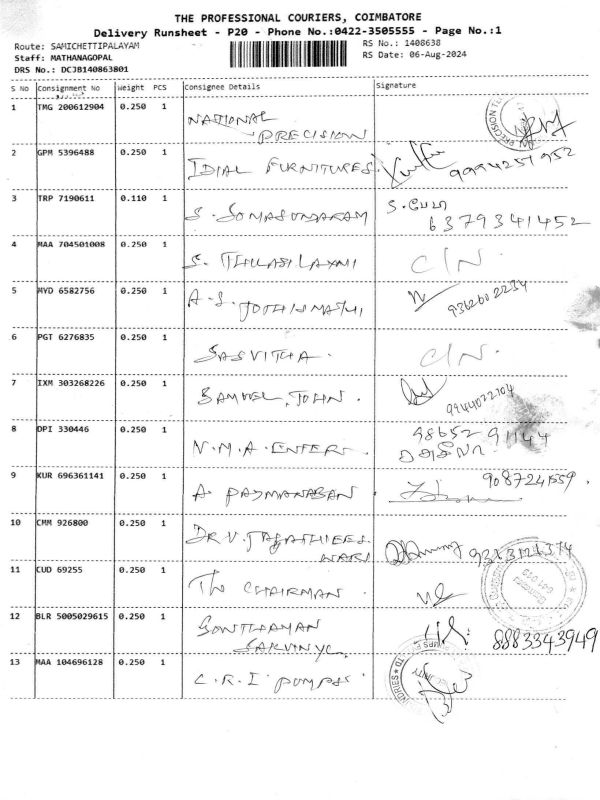 THE PROFESSIONAL COURIERS, COIMBATORE
Delivery Runsheet - P20 - Phone No.:0422-3505555 - Page No.:1
Route: SAMICHETTIPALAYAM
Staff: MATHANAGOPAL
DRS No.: DCJB140863801
RS No.: 1408638
RS Date: 06-Aug-2024
S No Consignment No Weight PCS Consignee Details Signature
1 TMG 200612904 0.250 1 NATIONAL
PRECISION
2 GPM 5396488 0.250 1 IDIAL FURNITURES.
9994251952
3 TRP 7190611 0.110 1 S. SOMASUNDARAM
6379341452
4 MAA 704501008 0.250 1 S. THULASI LAXMI C/N.
5 MYD 6582756 0.250 1 A.S. JOTHIMANI
9362602234
6 PGT 6276835 0.250 1 SASVITHA. C/N.
7 IXM 303268226 0.250 1 SAMUEL, JOHN.
9944022104
8 DPI 330446 0.250 1 N.M.A. ENTERP.
98652 91144
9 KUR 696361141 0.250 1 A. PADMANABAN
9087241559.
10 CMM 926800 0.250 1 DR V. JAGATHEES
WARI
11 CUD 69255 0.250 1 The CHAIRMAN
12 BLR 5005029615 0.250 1
8883343949
13 MAA 104696128 0.250 1 C.R.I PUMPS